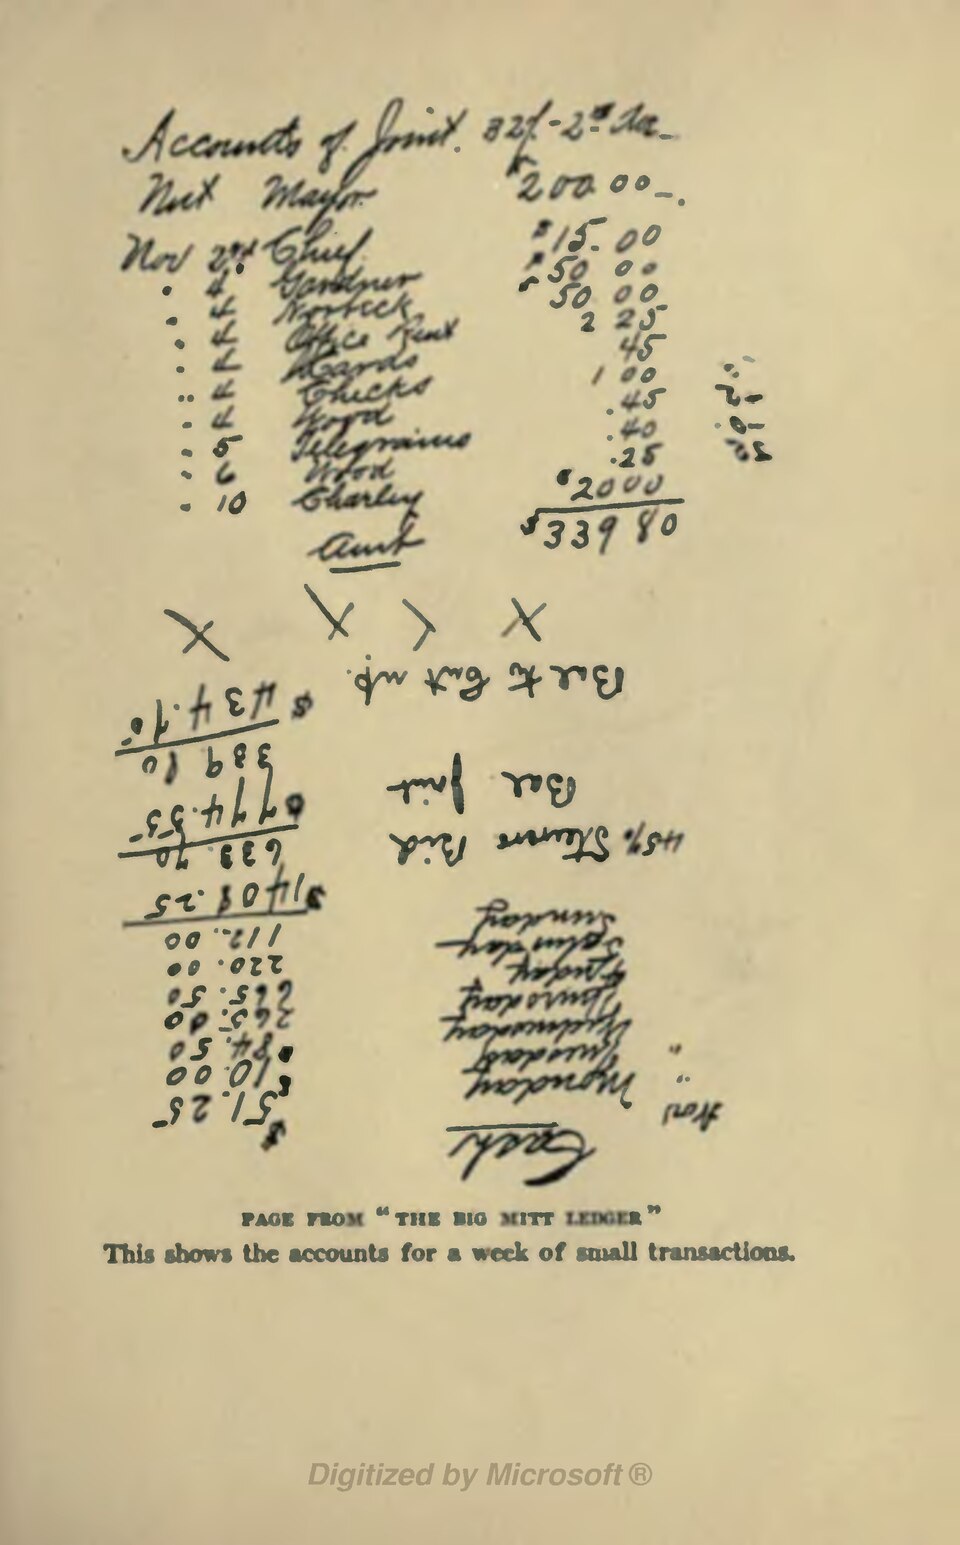 Accounts of Joint. 327-2nd Ave
Nut Mayor $200 00
Nov 2nd Chief $15.00
" 4 Gardner $50 00
" 4 Norbeck $50 00
" 4 Office Rent 2 25
" 4 Cards 45
" 4 Checks 1 00
" 4 Wood .45
" 5 Telegrams .40
" 6 Wood .25
" 10 Charley $20 00
Amt $339 80
Cash
Nov Monday $51.25
" Tuesday $10.00
" Wednesday 84.50
Thursday 265.00
Friday 665.50
Saturday 220.00
Sunday 112.00
$1408.25
45% Steerers Paid 633 70
774.55
Bal Joint 339 80
Bal to Cut up. $434.75
PAGE FROM "THE BIG MITT LEDGER"
This shows the accounts for a week of small transactions.
Digitized by Microsoft ®